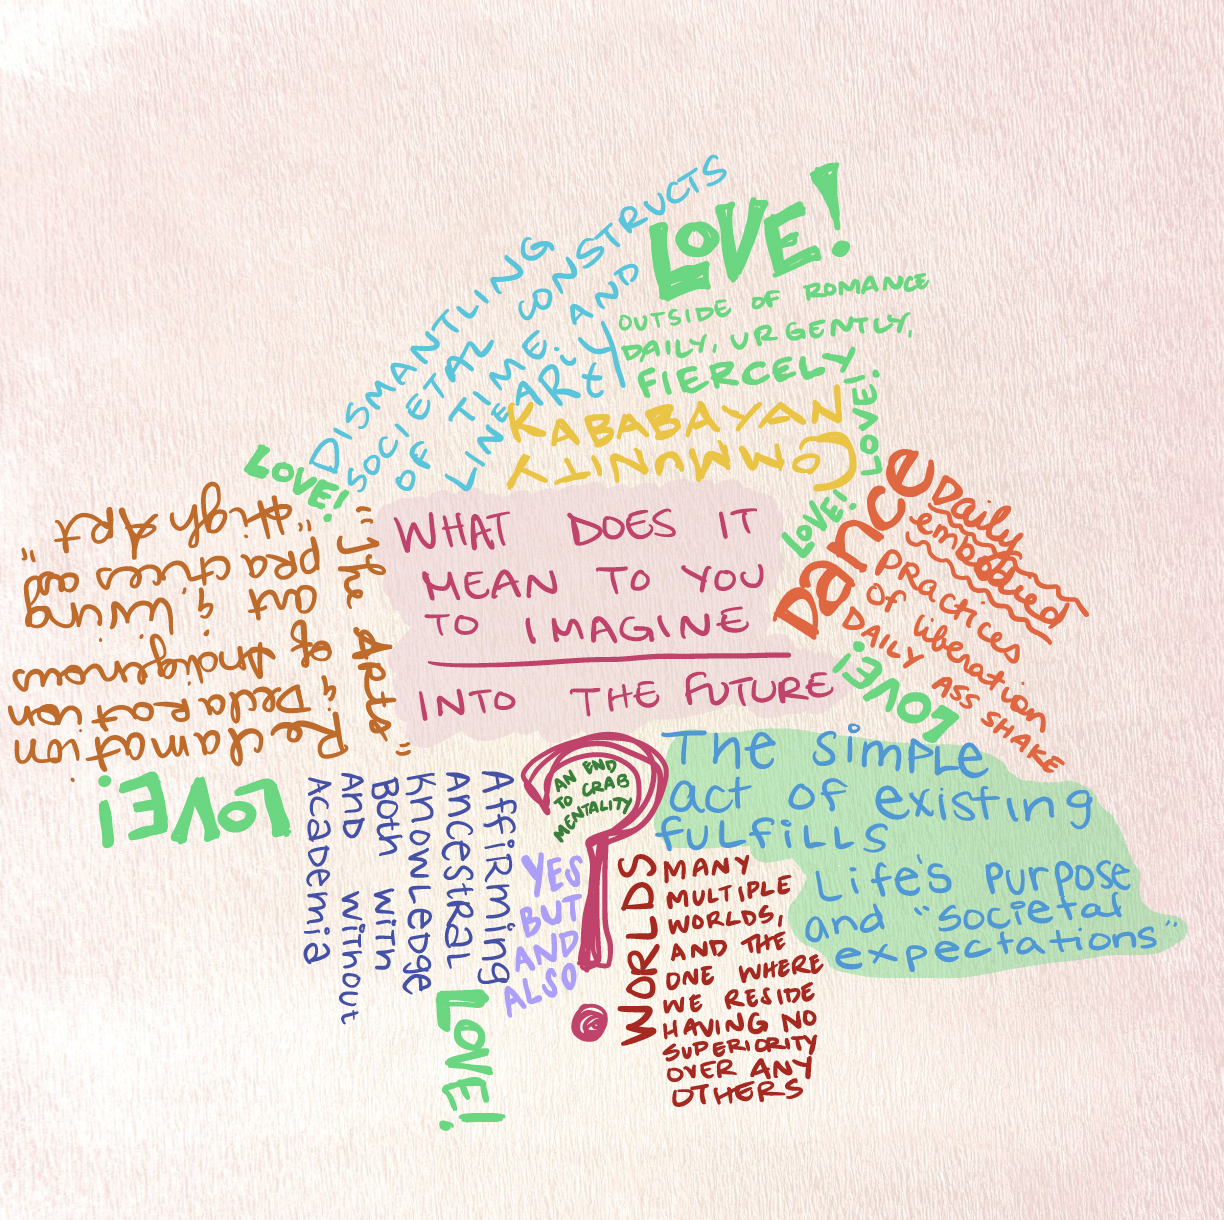 DISMANTLING
SOCIETAL CONSTRUCTS
OF TIME AND
LINEARiTY
LOVE!
OUTSIDE OF ROMANCE
DAILY, URGENTLY,
FIERCELY
LOVE!
KABABAYAN
COMMUNITY
LOVE!
LOVE!
Dance
Daily
embodied
PRactices
of liberation
DAILY ASS SHAKE
LOVE!
WHAT DOES IT
MEAN TO YOU
TO IMAGINE
INTO THE FUTURE
?
"The Arts"
Reclamation
& Declaration
of
practices as
"High Art"
LOVE!
AN END
TO CRAB
MENTALITY
The simple
act of existing
fulfills
Life's Purpose
and "societal
expectations"
Affirming
Ancestral
Knowledge
Both with
AND without
Academia
YES
BUT
AND
ALSO
LOVE!
WORLDS
MANY
MULTIPLE
WORLDS,
AND THE
ONE WHERE
WE RESIDE
HAVING NO
SUPERIORITY
OVER ANY
OTHERS